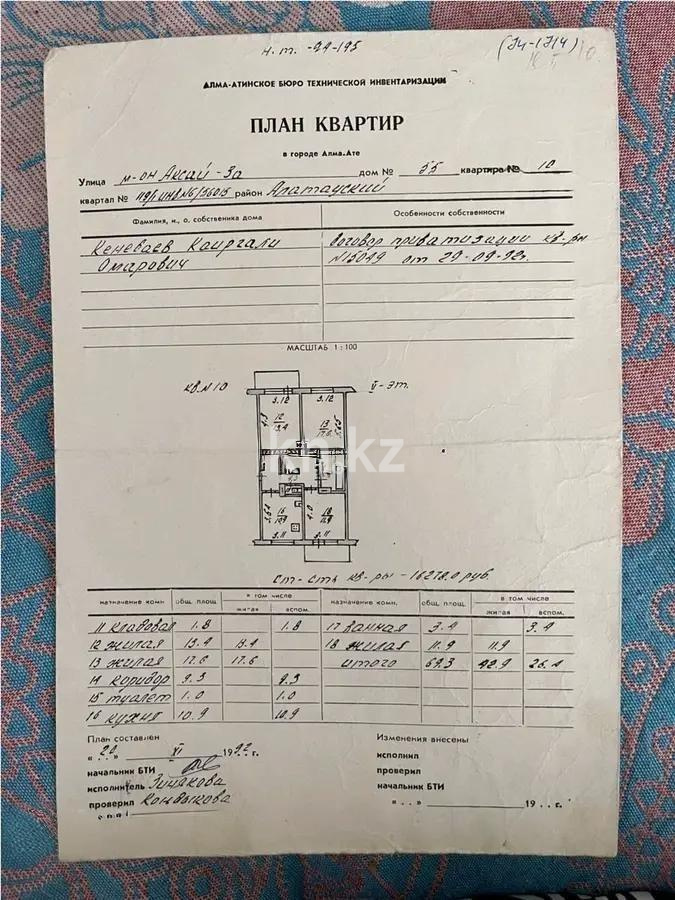 н.т. -94-195
(94-1314)
АЛМА-АТИНСКОЕ БЮРО ТЕХНИЧЕСКОЙ ИНВЕНТАРИЗАЦИИ
ПЛАН КВАРТИР
в городе Алма-Ате
Улица м-он Аксай-3а дом № 55 квартира № 10
квартал № район Алатауский
Фамилия, и., о, собственика дома Особенности собственности
Кенебаев Каиргали Договор приватизации кв-ры
Омарович N15049 от 29-09-92г.
МАСШТАБ 1 : 100
кв.N10
V-эт.
3.12 3.12
12 13.4
13 17.6
kn.kz
16 10.9
18 11.9
3.11 3.11
ст-сть кв-ры -16278.0 руб.
назначение комн общ. площ. в том числе назначение комн. общ. площ. в том числе
жилая вспом. жилая вспом.
11 кладовая 1.8 1.8 17 ванная 3.4 3.4
12 жилая 13.4 13.4 18 жилая 11.9 11.9
13 жилая 17.6 17.6 итого 69.3 42.9 26.4
14 коридор 9.3 9.3
15 туалет 1.0 1.0
16 кухня 10.9 10.9
План составлен Изменения внесены
"20" XI 1992 г. исполнил
начальник БТИ проверил
исполнитель начальник БТИ
проверил
" . . " 19 . . г.